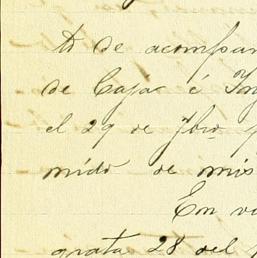 to de acompan
de Capac é Yn
el 29 de 7bre p
mido de mis
En v
grata 28 del p